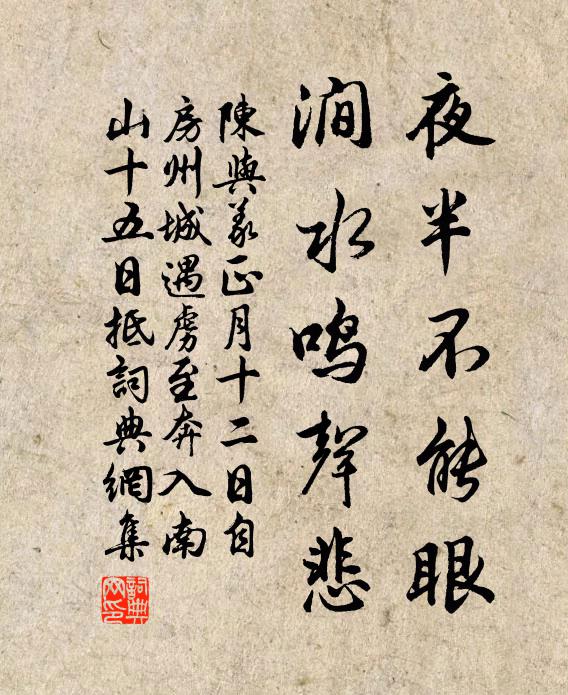 夜半不能眼
澗水鳴聲悲
陳與義正月十二日自
房州城遇虜至奔入南
山十五日抵詞典網集
詞典网印